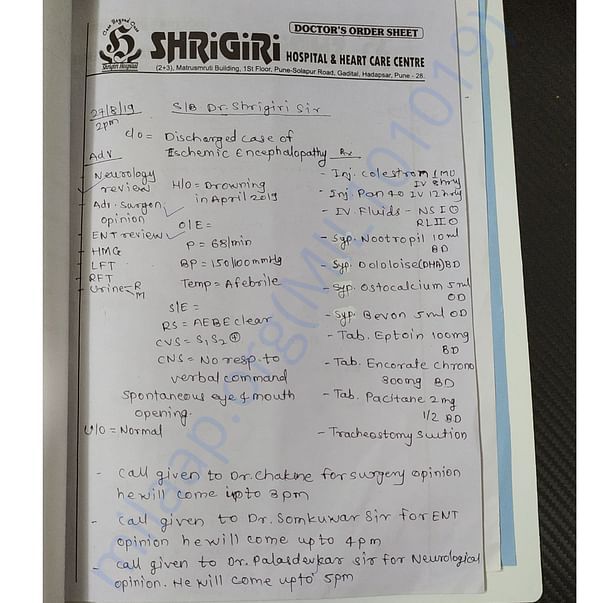 DOCTOR'S ORDER SHEET
Care Beyond Cure
Shrigiri Hospital
SHRiGiRi HOSPITAL & HEART CARE CENTRE
(2+3), Matrusmruti Building, 1St Floor, Pune-Solapur Road, Gadital, Hadapsar, Pune - 28.
27/8/19
2pm
S/B Dr. Shrigiri Sir
C/O = Discharged case of
Ischemic Encephalopathy
Adv
- Neurology
review
- Adv. Surgon
opinion
- ENT review
- HMG
- LFT
- RFT
- Urine - R
M
H/O = Drowning
in April 2019
O/E =
P = 68/min
BP = 150/100mmHg
Temp = Afebrile
S/E =
RS = AEBE clear
CVS = S1 S2 ⊕
CNS = No resp. to
verbal command
spontaneous eye & mouth
opening.
U/O = Normal
Rx
- Inj. Colestrom 1MU
IV 8hrly
- Inj. Pan 40 IV 12hrly
- IV. Fluids - NS I
RL II
- Syp. Nootropil 10ml
BD
- Syp. Dololoise (DHA) BD
- Syp. Ostocalcium 5ml
OD
- Syp. Bevon 5ml OD
- Tab. Eptoin 100mg
BD
- Tab. Encorate Chrono
300mg BD
- Tab. Pacitane 2mg
1/2 BD
- Tracheostomy Suction
- Call given to Dr. Chakne for surgery opinion
he will come upto 3pm
- Call given to Dr. Somkuwar Sir for ENT
opinion he will come upto 4pm
- Call given to Dr. Palasdevkar sir for Neurological
opinion. He will come upto 5pm
milaap.org(MIL1010119)